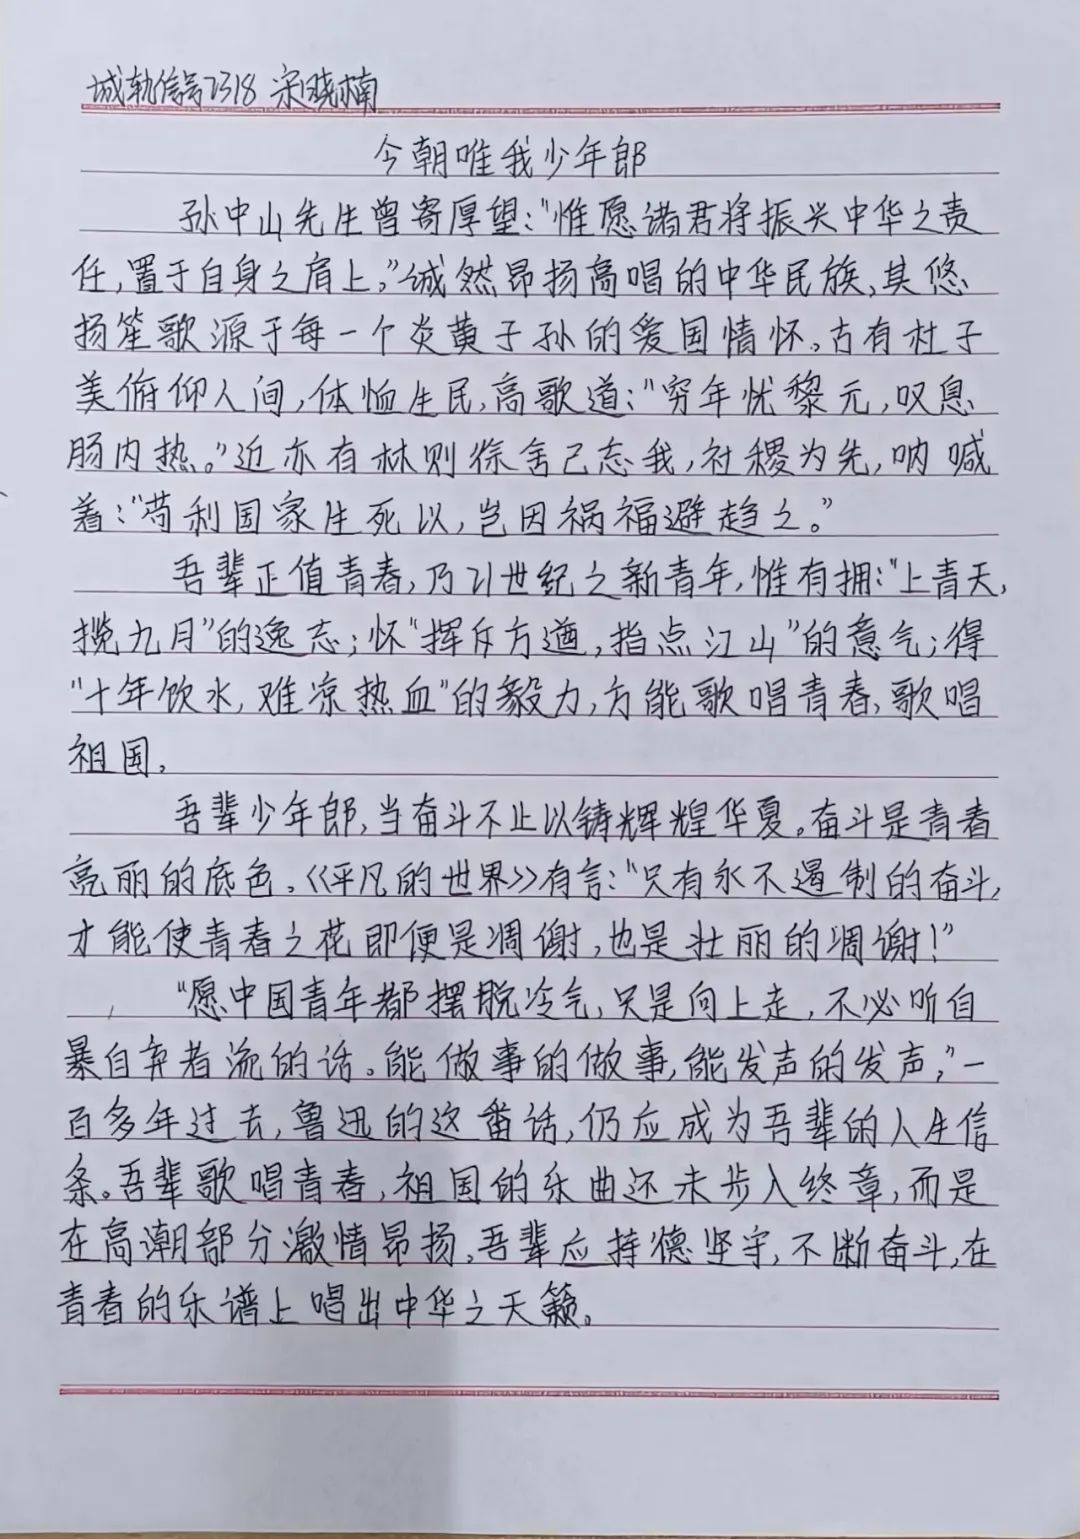 城轨信号2318 宋晓楠
今朝唯我少年郎
孙中山先生曾寄厚望:“惟愿诸君将振兴中华之责
任,置于自身之肩上。”诚然昂扬高唱的中华民族,其悠
扬笙歌源于每一个炎黄子孙的爱国情怀。古有杜子
美俯仰人间,体恤生民,高歌道:“穷年忧黎元,叹息
肠内热。”近亦有林则徐舍己忘我,社稷为先,呐喊
着:“苟利国家生死以,岂因祸福避趋之。”
吾辈正值青春,乃21世纪之新青年,惟有拥:“上青天,
揽九月”的逸志;怀“挥斥方遒,指点江山”的意气;得
“十年饮水,难凉热血”的毅力,方能歌唱青春,歌唱
祖国。
吾辈少年郎,当奋斗不止以铸辉煌华夏。奋斗是青春
亮丽的底色。《平凡的世界》有言:“只有永不遏制的奋斗,
才能使青春之花即便是凋谢,也是壮丽的凋谢!”
“愿中国青年都摆脱冷气,只是向上走,不必听自
暴自弃者流的话。能做事的做事,能发声的发声,”一
百多年过去,鲁迅的这番话,仍应成为吾辈的人生信
条。吾辈歌唱青春,祖国的乐曲还未步入终章,而是
在高潮部分激情昂扬,吾辈应持德坚守,不断奋斗,在
青春的乐谱上唱出中华之天籁。